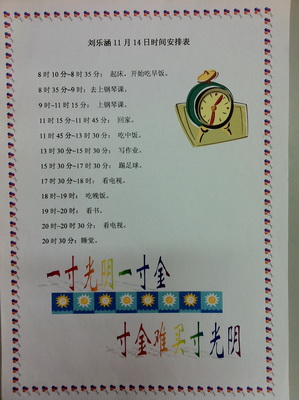 刘乐涵11月14日时间安排表
8时10分~8时35分：起床，开始吃早饭。
8时35分~9时：去上钢琴课。
9时~11时15分：上钢琴课。
11时15分~11时45分：回家。
11时45分~13时30分：吃中饭。
13时30分~15时30分：写作业。
15时30分~17时30分：踢足球。
17时30分~18时：看电视。
18时~19时：吃晚饭。
19时~20时：看书。
20时~20时30分：看电视。
20时30分：睡觉。
一寸光明一寸金
寸金难买寸光明